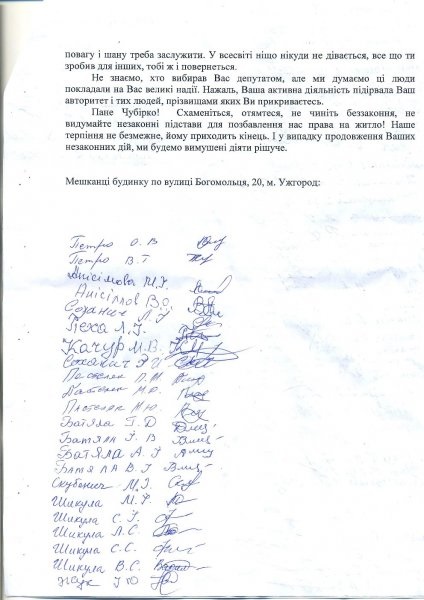 повагу і шану треба заслужити. У всесвіті ніщо нікуди не дівається, все що ти
зробив для інших, тобі ж і повернеться.
Не знаємо, хто вибирав Вас депутатом, але ми думаємо ці люди
покладали на Вас великі надії. Нажаль, Ваша активна діяльність підірвала Ваш
авторитет і тих людей, прізвищами яких Ви прикриваєтесь.
Пане Чубірко! Схаменіться, отямтеся, не чиніть беззаконня, не
видумайте незаконні підстави для позбавлення нас права на житло! Наше
терпіння не безмежне, йому приходить кінець. І у випадку продовження Ваших
незаконних дій, ми будемо вимушені діяти рішуче.
Мешканці будинку по вулиці Богомольця, 20, м. Ужгород:
Петро О. В
Петро В. Г
Анісімова М.
Анісімов В.О.
Соханич Л.
Пеха Л.
Качур М.В.
Соханич
Пастеляк П.М
Пастеляк М.Ю.
Батяла Г. Д
Батяла І. В
Батяла А. І
Батяла В. І
Скубенич М.І.
Шикула М. Ф
Шикула С. І.
Шикула А.С.
Шикула С.С.
Шикула В.С.